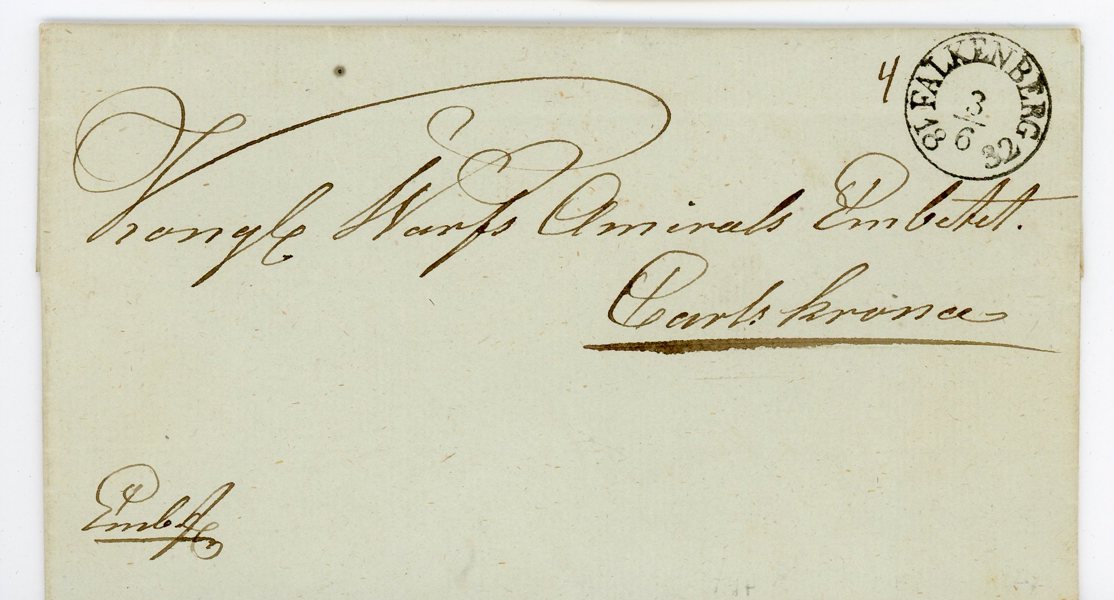 4
FALKENBERG
3
6
18 32
Kongl Warfs Amirals Embetet.
Carlskrona